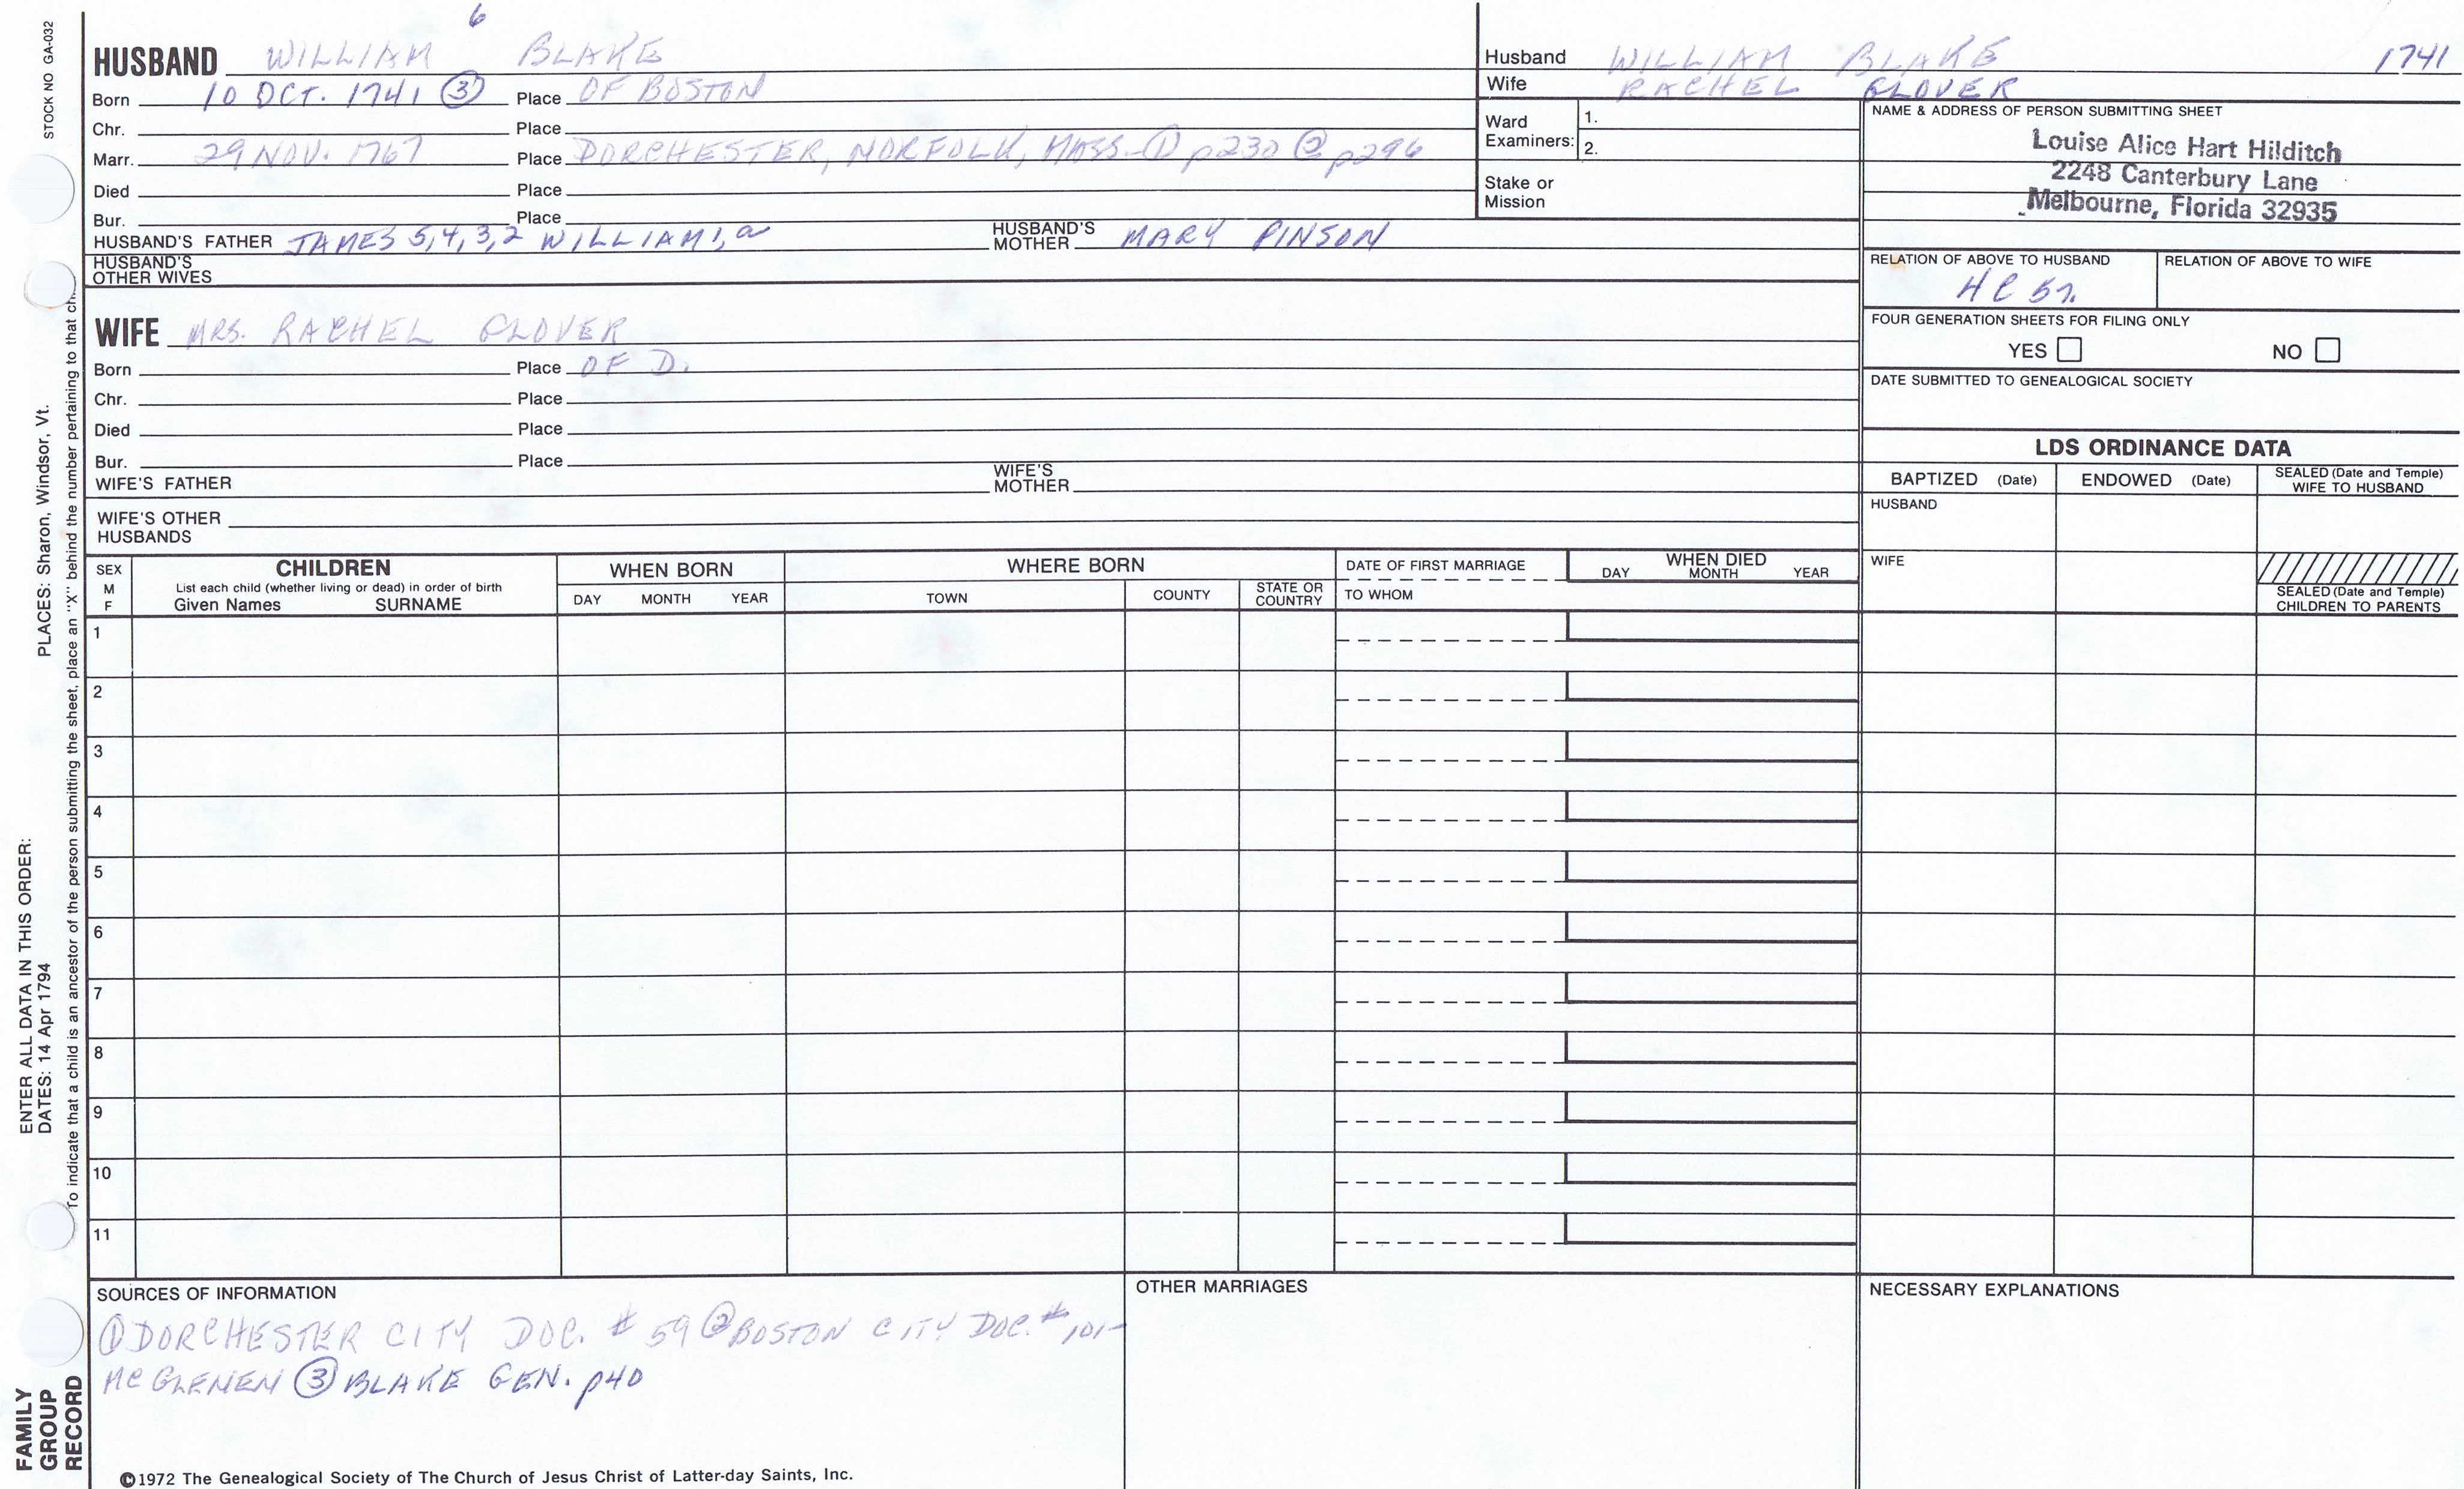 6
HUSBAND WILLIAM BLAKE
Born 10 OCT. 1741 ③ Place OF BOSTON
Chr. Place
Marr. 29 NOV. 1767 Place DORCHESTER, NORFOLK, MASS- ① p230 ② p296
Died Place
Bur. Place
HUSBAND'S FATHER JAMES 5,4,3,2 WILLIAM 1,a HUSBAND'S MOTHER MARY PINSON
HUSBAND'S
OTHER WIVES
WIFE MRS. RACHEL GLOVER
Born Place OF D.
Chr. Place
Died Place
Bur. Place
WIFE'S FATHER WIFE'S MOTHER
WIFE'S OTHER
HUSBANDS
Husband WILLIAM BLAKE 1741
Wife RACHEL GLOVER
Ward Examiners: 1.
2.
Stake or
Mission
NAME & ADDRESS OF PERSON SUBMITTING SHEET
Louise Alice Hart Hilditch
2248 Canterbury Lane
Melbourne, Florida 32935
RELATION OF ABOVE TO HUSBAND RELATION OF ABOVE TO WIFE
FOUR GENERATION SHEETS FOR FILING ONLY
YES NO
DATE SUBMITTED TO GENEALOGICAL SOCIETY
LDS ORDINANCE DATA
BAPTIZED (Date) ENDOWED (Date) SEALED (Date and Temple) WIFE TO HUSBAND
HUSBAND
WIFE
SEALED (Date and Temple)
CHILDREN TO PARENTS
SEX M F CHILDREN WHEN BORN WHERE BORN DATE OF FIRST MARRIAGE WHEN DIED
List each child (whether living or dead) in order of birth
Given Names SURNAME DAY MONTH YEAR TOWN COUNTY STATE OR COUNTRY TO WHOM DAY MONTH YEAR
1
2
3
4
5
6
7
8
9
10
11
SOURCES OF INFORMATION OTHER MARRIAGES NECESSARY EXPLANATIONS
① DORCHESTER CITY DOC. # 59 ② BOSTON CITY DOC. # 101-
McGLENEN ③ BLAKE GEN. p40
©1972 The Genealogical Society of The Church of Jesus Christ of Latter-day Saints, Inc.
STOCK NO GA-032
PLACES: Sharon, Windsor, Vt.
ENTER ALL DATA IN THIS ORDER:
DATES: 14 Apr 1794
To indicate that a child is an ancestor of the person submitting the sheet, place an "X" behind the number pertaining to that ch
FAMILY
GROUP
RECORD